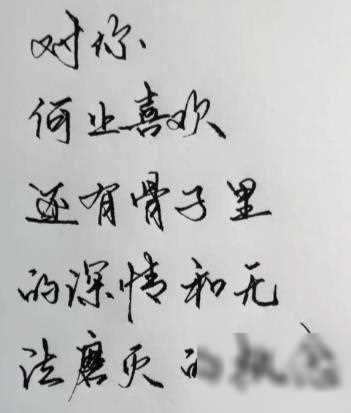 对你
何止喜欢
还有骨子里
的深情和无
法磨灭